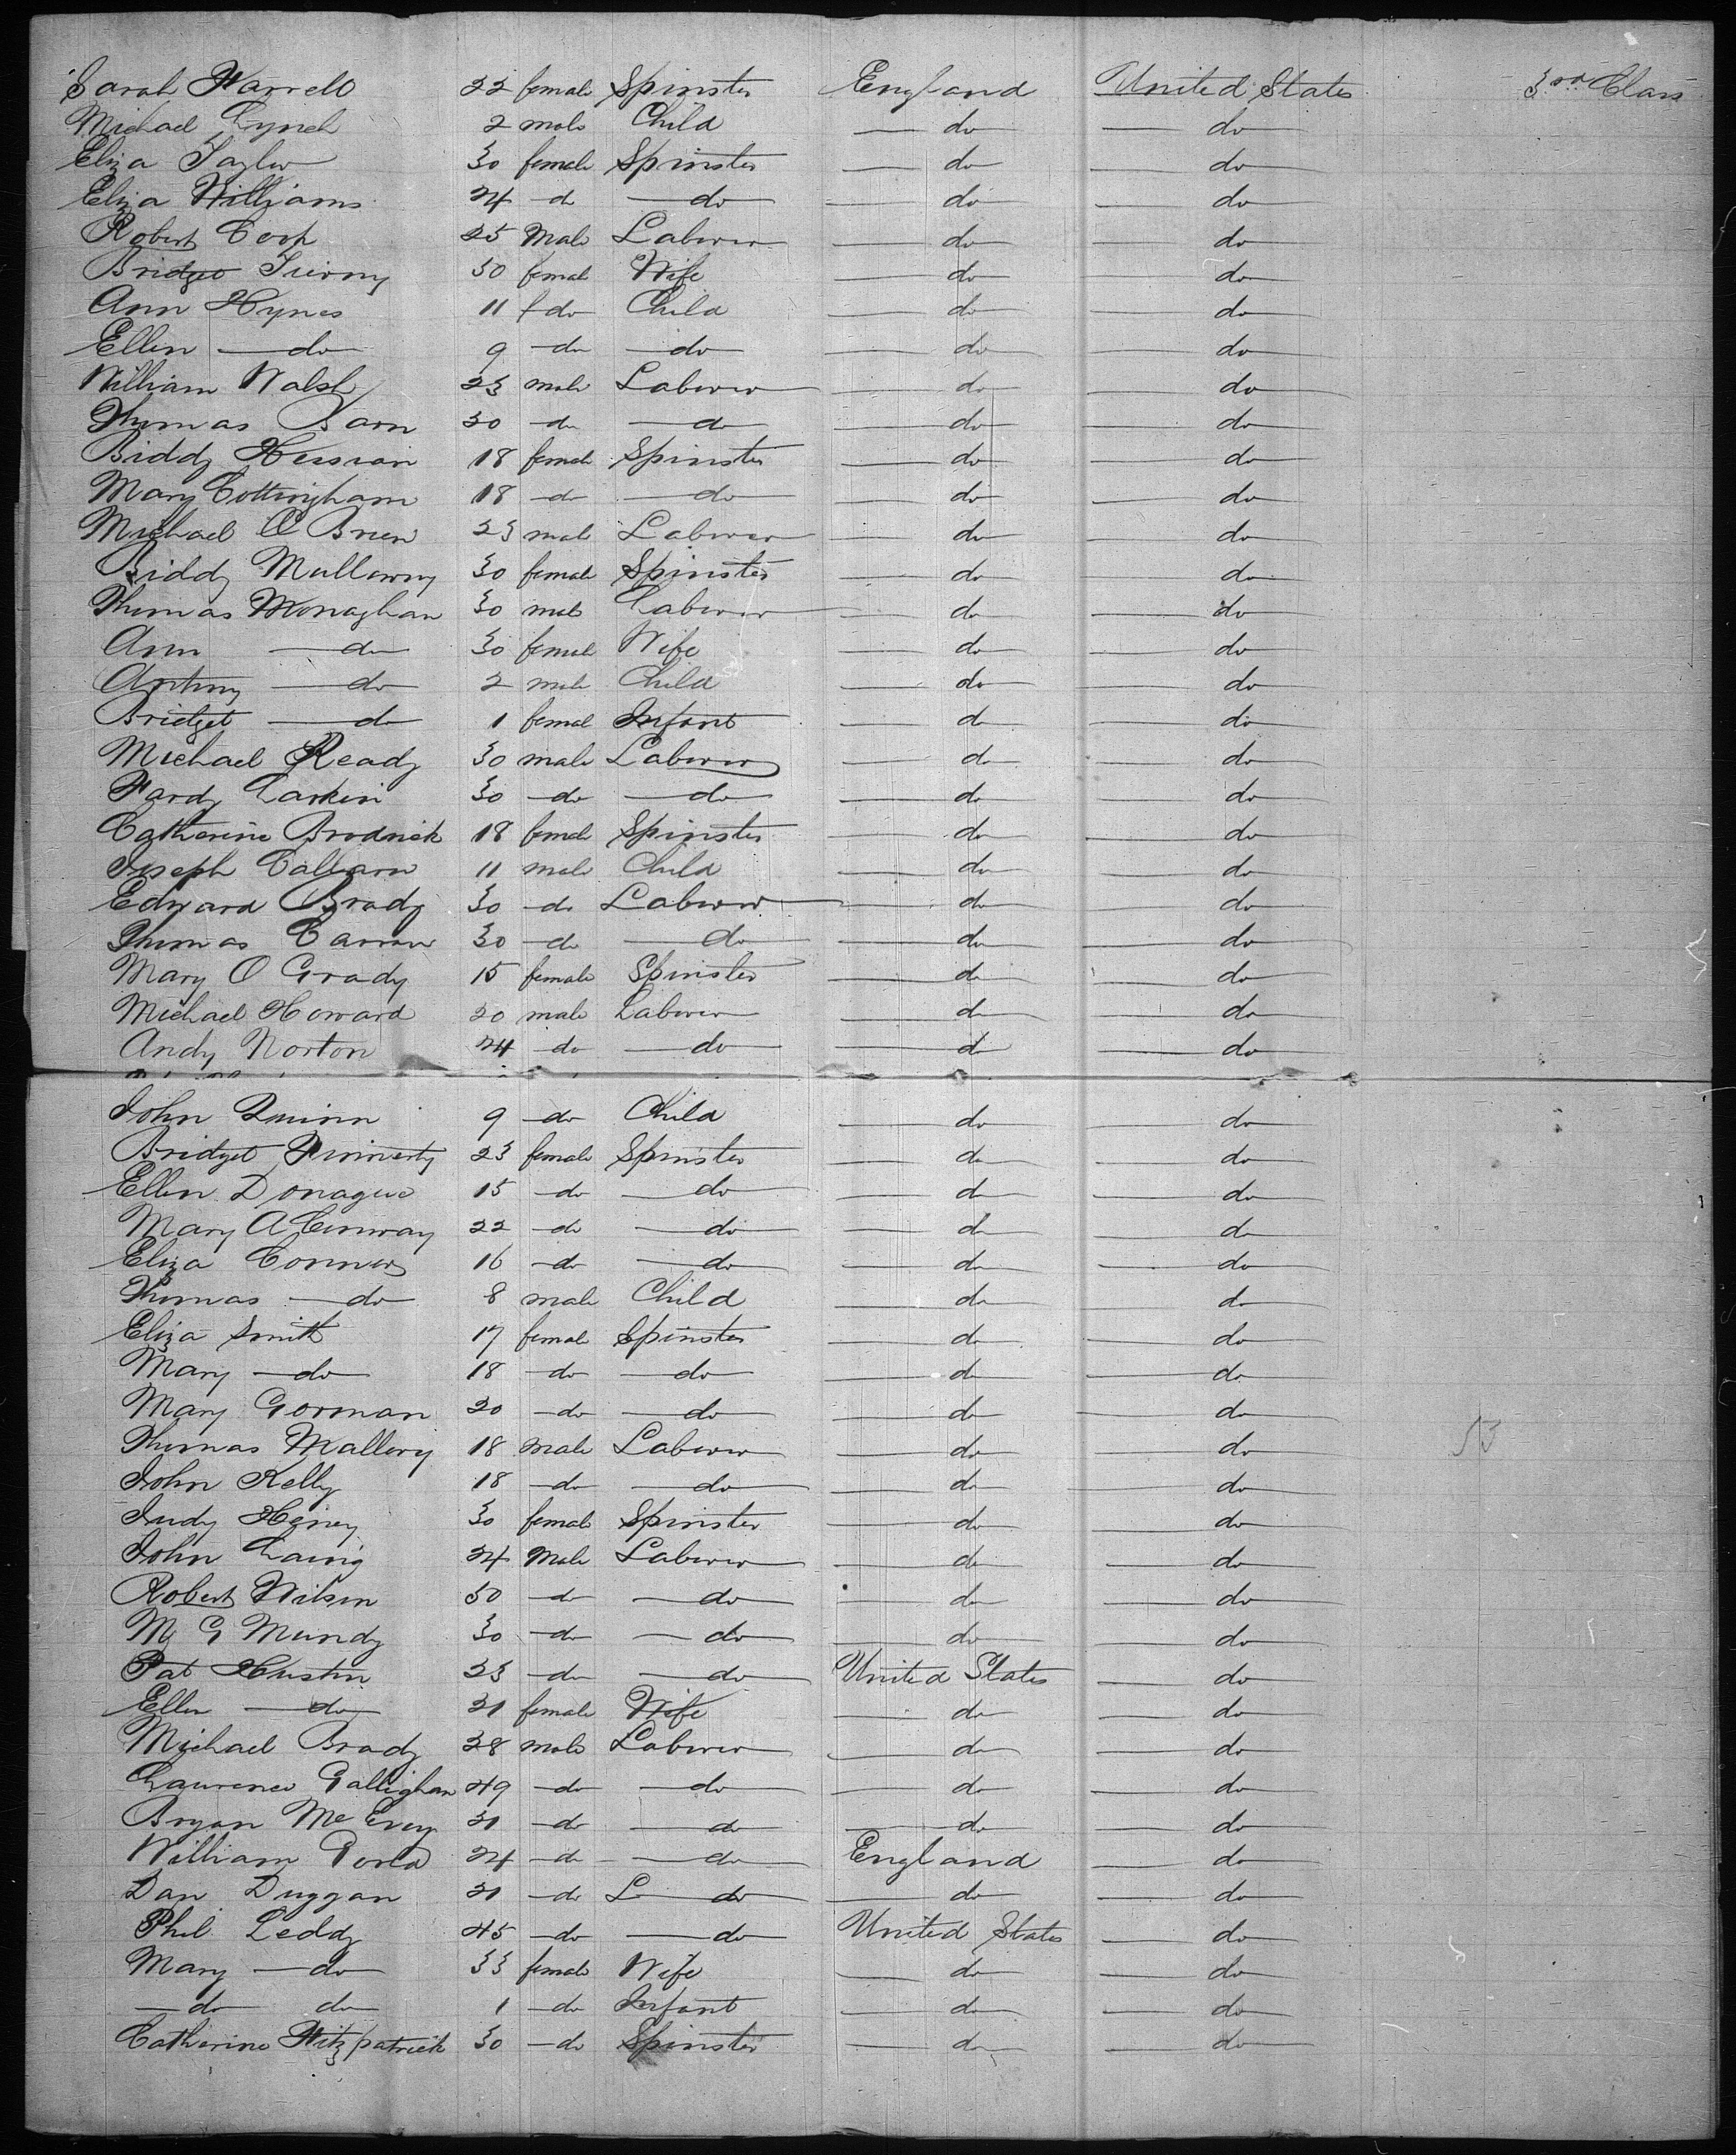 Sarah Farrell 22 female Spinster England United States 3rd Class
Michael Lynch 2 male Child do do
Eliza Taylor 30 female Spinster do do
Eliza Williams 24 d do do do
Robert Cook 25 Male Labourer do do
Bridget Tierny 30 female Wife do do
Ann Hynes 11 f do Child do do
Ellen do 9 do do do do
William Walsh 23 male Labourer do do
Thomas Barn 30 do do do do
Biddy Hession 18 female Spinster do do
Mary Cottingham 18 do do do do
Michael O Brien 23 male Labourer do do
Biddy Mullowny 30 female Spinster do do
Thomas Monaghan 30 male Labourer do do
Ann do 30 female Wife do do
Antony do 2 male Child do do
Bridget do 1 femal Infant do do
Michael Ready 30 male Labourer do do
Fardy Larkin 30 do do do do
Catherine Brodrick 18 female Spinster do do
Joseph Callearn 11 male Child do do
Edward Brady 30 do Labourer do do
Thomas 30 do do do do
Mary O Grady 15 female Spinster do do
Michael Howard 20 male Labourer do do
Andy Norton 24 do do do do
John Quinn 9 do Child do do
Bridget Finnerty 23 female Spinster do do
Ellen Donague 15 do do do do
Mary A Conway 22 do do do do
Eliza Connors 16 do do do do
Thomas do 8 male Child do do
Eliza Smith 17 female Spinster do do
Mary do 18 do do do do
Mary Gorman 20 do do do do
Thomas Mallory 18 male Labourer do do
John Kelly 18 do do do do
Judy Heiney 30 female Spinster do do
John Laing 24 Male Labourer do do
Robert Wilson 50 do do do do
M G Mundy 30 do do do do
Pat Huston 23 do do United States do
Ellen do 21 female Wife do do
Michael Brady 28 male Labourer do do
Laurence Galligham 49 do do do do
Bryan McEvoy 21 do do do do
William Gord 24 do do England do
Dan Duggan 21 do L do do do
Phil Leddy 45 do do United States do
Mary do 33 female Wife do do
do do 1 do Infant do do
Catherine Fitzpatrick 30 do Spinster do do